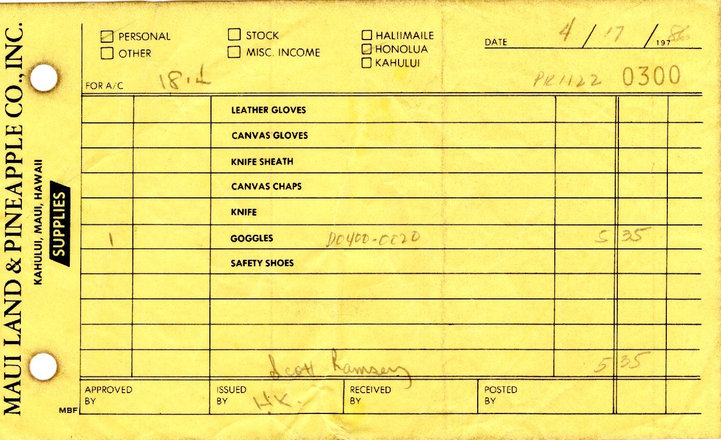 MAUI LAND & PINEAPPLE CO., INC.
KAHULUI, MAUI, HAWAII
SUPPLIES
PERSONAL
OTHER
STOCK
MISC. INCOME
HALIIMAILE
HONOLUA
KAHULUI
DATE 4 / 17 / 197 86
FOR A/C
PR1122 0300
LEATHER GLOVES
CANVAS GLOVES
KNIFE SHEATH
CANVAS CHAPS
KNIFE
1 GOGGLES D0400-0020 5 35
SAFETY SHOES
Scott Ramsey 5 35
APPROVED BY
ISSUED BY HK.
RECEIVED BY
POSTED BY
MBF